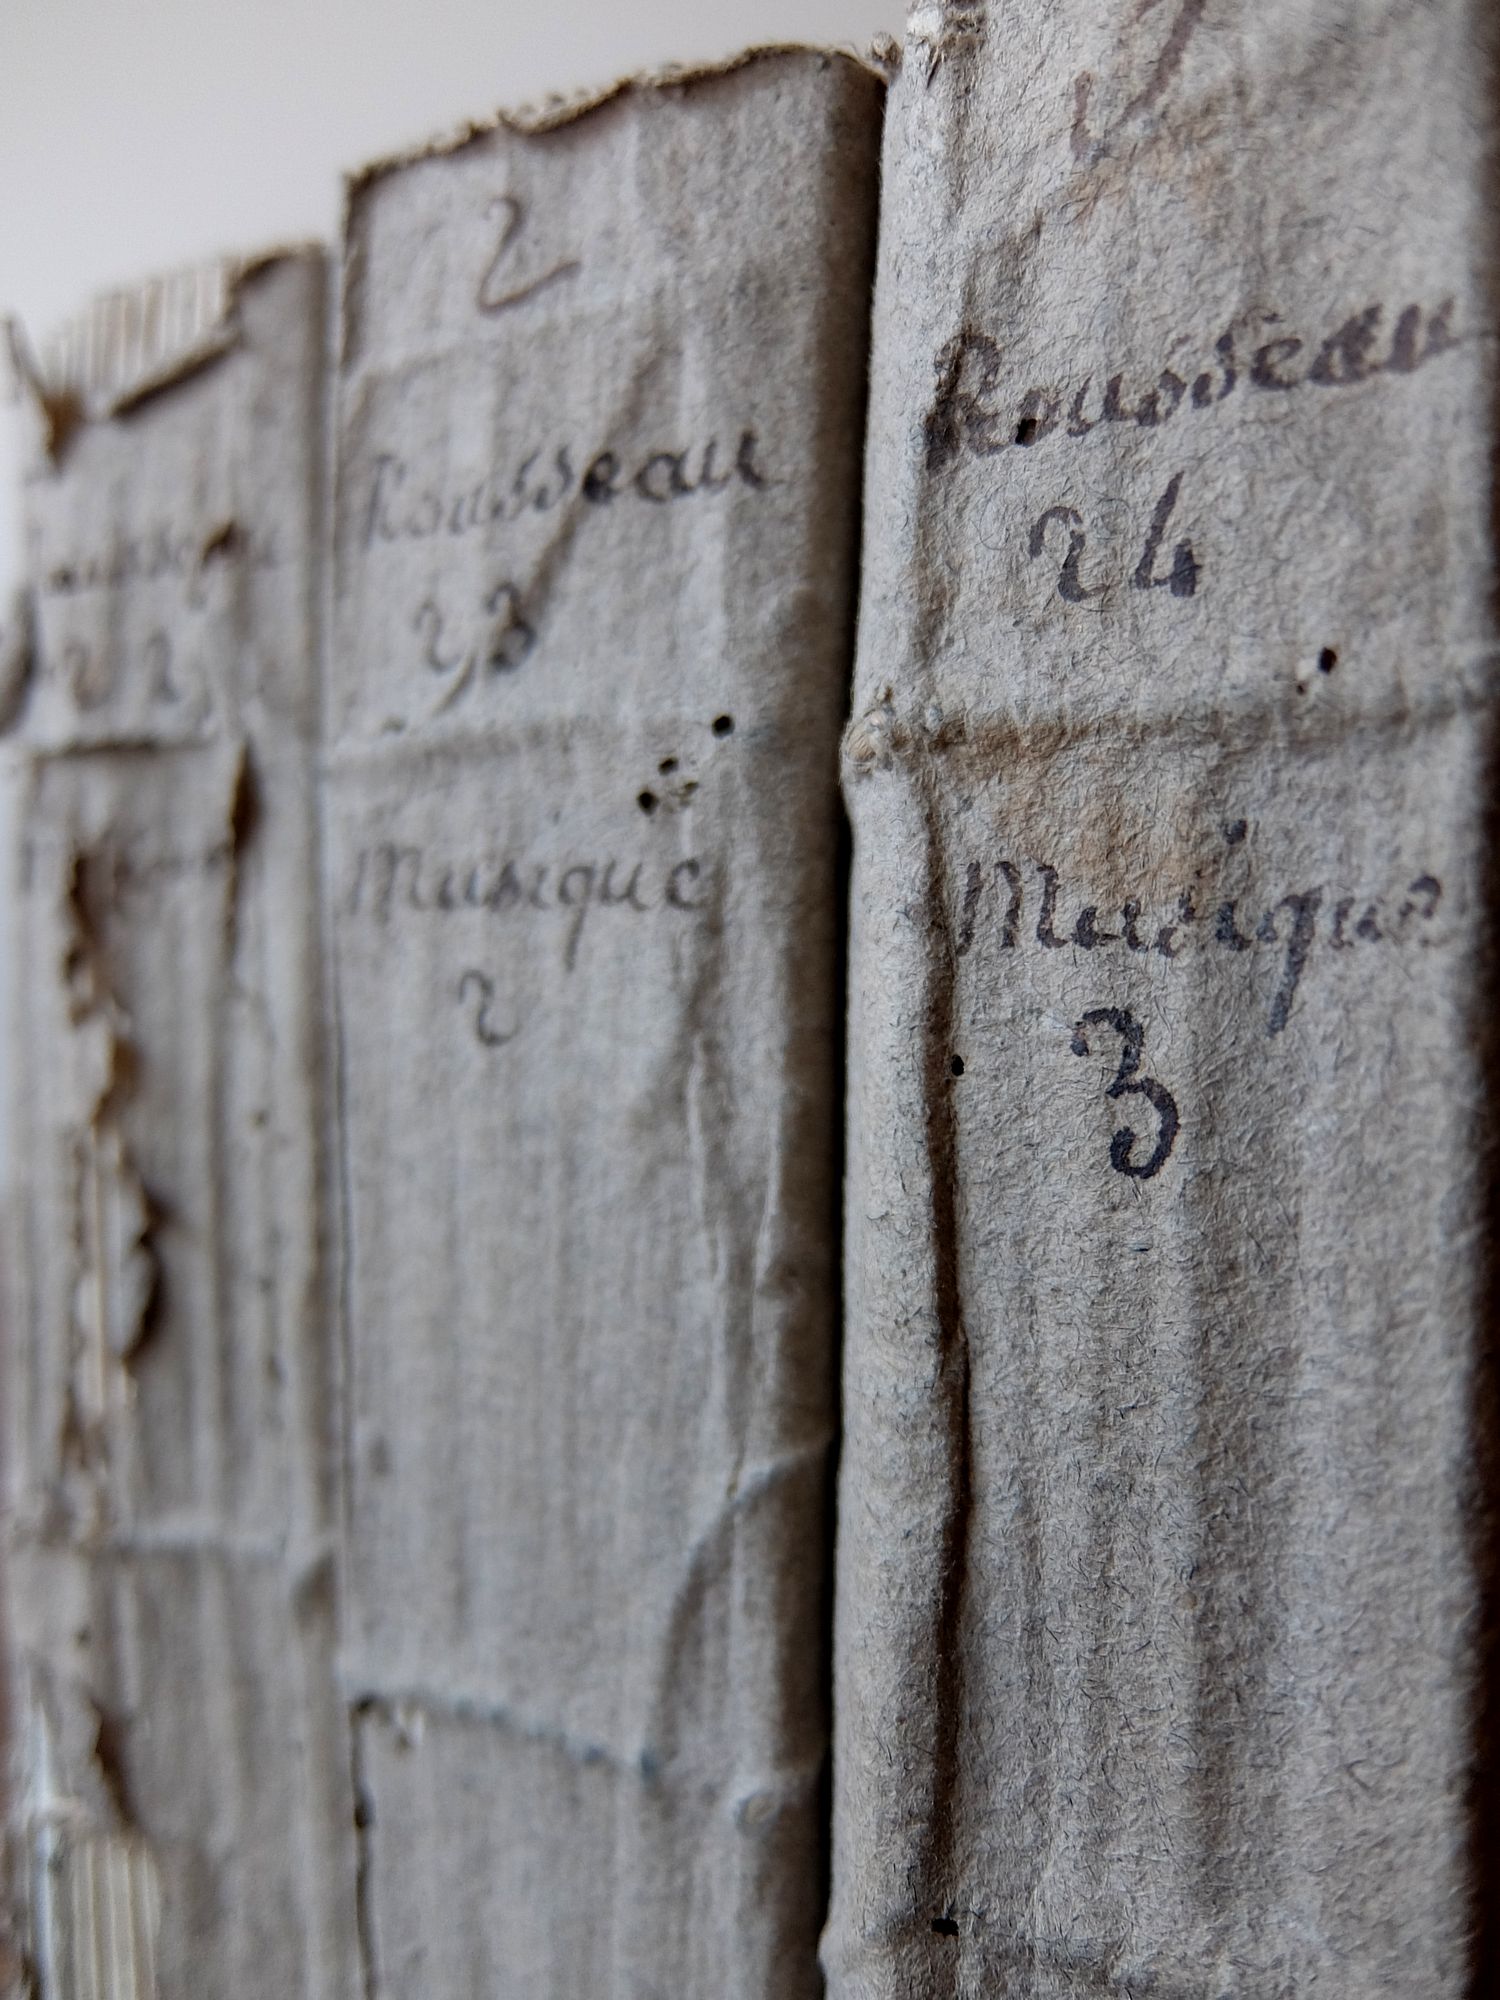 Rousseau
22
2
Rousseau
23
Musique
2
Rousseau
24
Musique
3